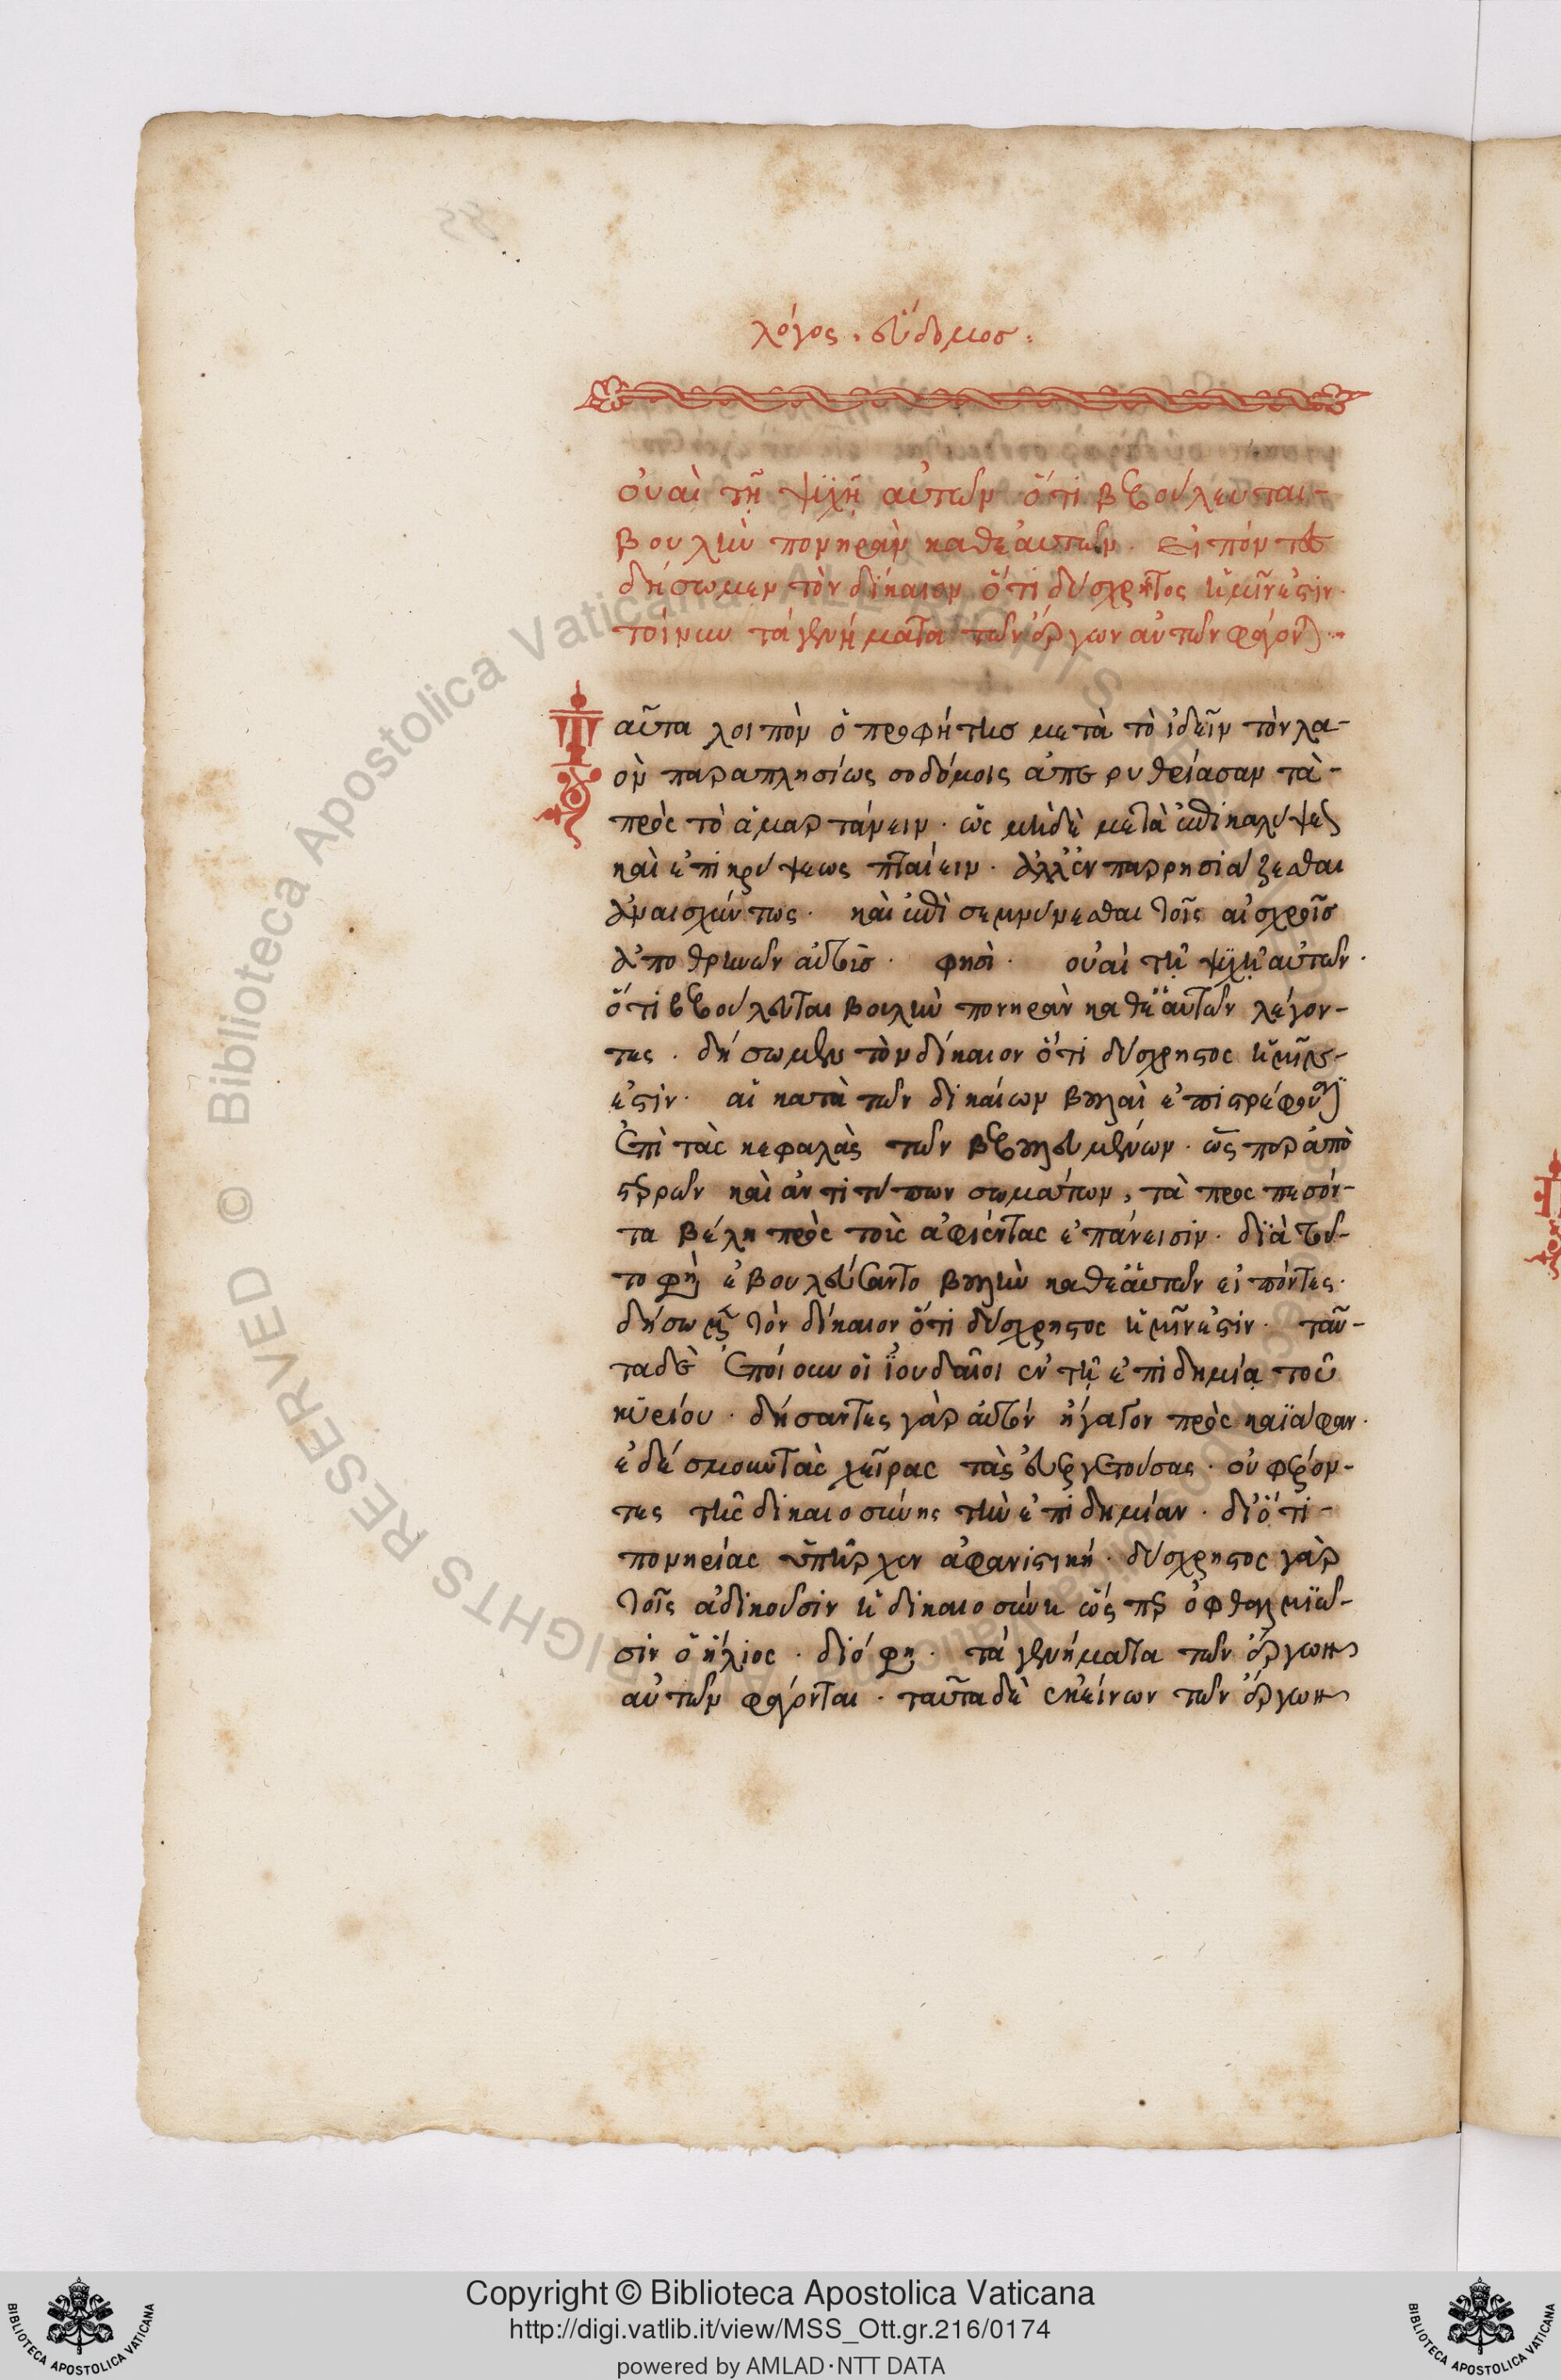 λόγος. ἕβδομοσ:
οὐαὶ τῇ ψυχῇ αὐτῶν ὅτι βεβούλευται-
βουλὴν πονηρὰν καθεἁυτῶν. εἰπόντες
δήσωμεν τὸν δίκαιον ὅτι δύσχρηστος ἡμῖν ἐστιν.
τοίνυν τὰ γενήματα τῶν ἔργων αὐτῶν φάγονται
Ταῦτα λοιπὸν ὁ προφήτησ μετὰ τὸ ἰδεῖν τὸν λα-
ὸν παραπλησίως σοδόμοις ἀπερυθριάσαν τὰ-
πρὸς τὸ ἁμαρτάνειν. ὡς μηδὲ μετὰ ἐπικαλύψεως
καὶ ἐπικρύψεως πταίειν. ἀλλ' ἐν παρρησιάζεσθαι
ἀναισχύντως. καὶ ἐπὶ σεμνύνεσθαι τοῖς αἰσχροῖσ
ἀποθρηνῶν αὐτοῖσ. φησὶ. οὐαὶ τῇ ψυχῇ αὐτῶν.
ὅτι βεβούλευται βουλὴν πονηρὰν καθεἁυτῶν λέγον-
τες. δήσωμεν τὸν δίκαιον ὅτι δύσχρηστος ἡμῖν
ἐστίν. αἱ κατὰ τῶν δικαίων βουλαὶ ἐπιστρέφουσι
ἐπὶ τὰς κεφαλὰς τῶν βεβουλευμένων. ὥσπερ ἀπὸ
στερρῶν καὶ ἀντιτύπων σωμάτων, τὰ προσπεσόν-
τα βέλη πρὸς τοὺς ἀφιέντας ἐπάνεισιν. διὰ τοῦ-
το φησὶ ἐβουλεύσαντο βουλὴν καθεἁυτῶν εἰπόντες.
δήσωμεν τὸν δίκαιον ὅτι δύσχρηστος ἡμῖν ἐστίν. ταῦ-
τα δὲ ἐποίουν οἱ ἰουδαῖοι ἐν τῇ ἐπιδημίᾳ τοῦ
κυρίου. δήσαντες γὰρ αὐτόν ἠγαγον πρὸς καϊάφαν.
ἐδέσμουν τὰς χεῖρας τὰς εὐεργετούσας. οὐ φέρον-
τες τῆς δικαιοσύνης τὴν ἐπιδημίαν. διότι-
πονηρίας ὑπῆρχεν ἀφανιστική. δύσχρηστος γὰρ
τοῖς ἀδικοῦσιν ἡ δικαιοσύνη ὥσπερ ὀφθαλμιῶ-
σιν ὁ ἥλιος. διό φησι. τὰ γενήματα τῶν ἔργων
αὐτῶν φάγονται. ταῦτα δὲ ἐκείνων τῶν ἔργων
Copyright © Biblioteca Apostolica Vaticana
http://digi.vatlib.it/view/MSS_Ott.gr.216/0174
powered by AMLAD·NTT DATA